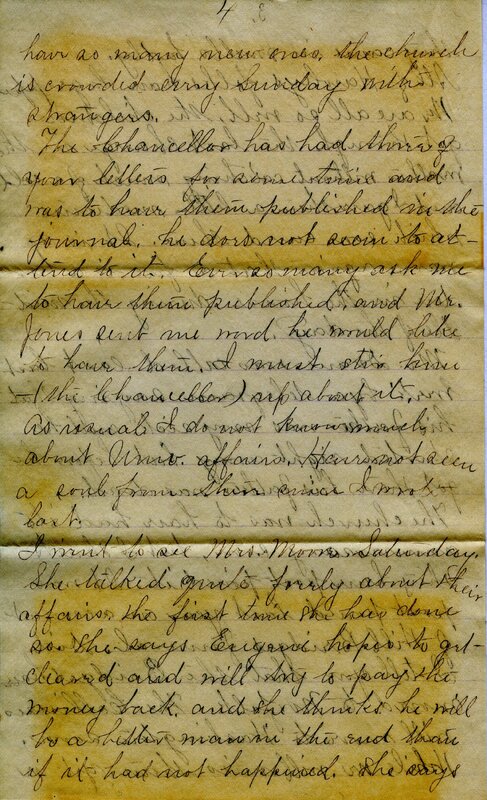 4
have so many new ones, the church
is crowded every Sunday with
strangers.
The Chancellor has had three of
your letters for some time and
was to have them published in the
journal, he does not seem to at-
tend to it. Ever so many ask me
to have them published, and Mr.
Jones sent me word he would like
to have them. I must stir him
(the Chancellor) up about it.
As usual I do not know much
about Univ. affairs. Have not seen
a soul from there since I wrote
last.
I went to see Mrs. Moore Saturday,
she talked quite freely about their
affairs, the first time she has done
so. She says Eugene hopes to get
cleared and will try to pay the
money back, and she thinks he will
be a better man in the end than
if it had not happened. She says